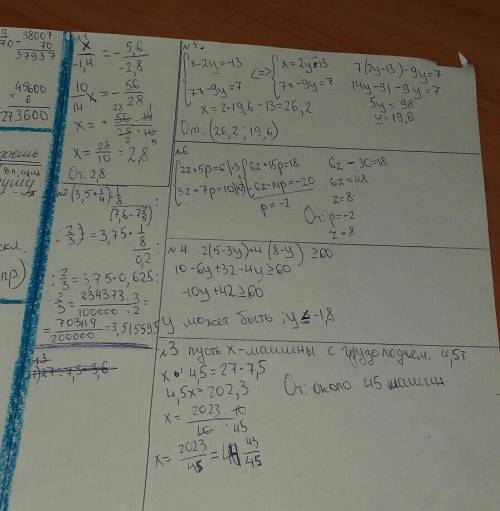 38007
70
37937
45600
6
273600
№1
x/-1,4 = -5,6/-2,8
10/14 x = -56/28
x = + 56·14/28·10
x = 28/10 = 2,8
От: 2,8
№2 (3,5+1/4)·1/8
(7,6-7 2/5)
: 2/3) = 3,75·1/8
0,2 :
: 2/3 = 3,75·0,625:
: 2/3 = 234373/100000 · 3/2 =
= 703119/200000 = 3,515595
№3
1) 27·7,5=3,6
№5.
{x-2y=-13
7x-9y=7
<=> {x=2y-13
7x-9y=7
7(2y-13)-9y=7
14y-91-9y=7
5y=98
y=19,6
x=2·19,6-13=26,2
От: (26,2; 19,6)
№6
{2z+5p=6|·3
3z+7p=10|·(-2)
{6z+15p=18
-6z-14p=-20
p=-2
6z-30=18
6z=48
z=8
От: p=-2
z=8
№4 2(5-3y)+4(8-y) ≥60
10-6y+32-4y≥60
-10y+42≥60
y может быть: y≤-1,8
№3 пусть x-машины с грузоподъем. 4,5т
x·4,5=27·7,5
4,5x=202,3
x= 2023·10/10·45
x= 2023/45 = 44 43/45
От: около 45 машин